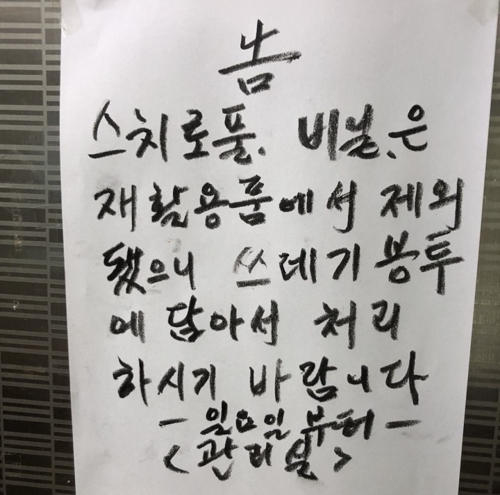 놈
스치로풀, 비닐,은
재활용품에서 제외
됐으니 쓰데기봉투
에 담아서 처리
하시기 바람니다
- 일요일 부터 -
< 관리실 >